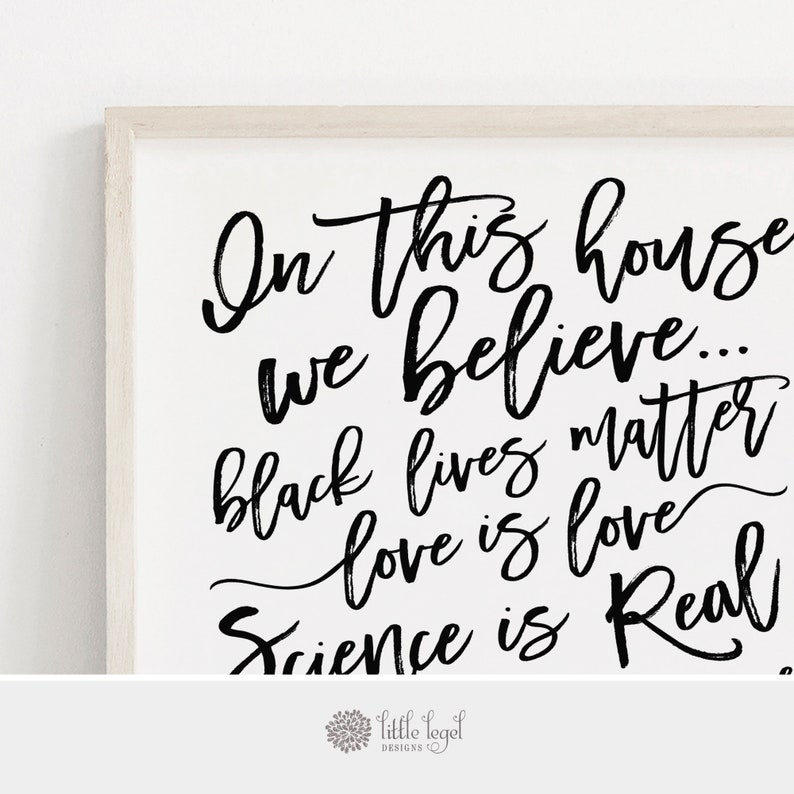 In this house
we believe...
black lives matter
love is love
Science is Real
little legel
DESIGNS